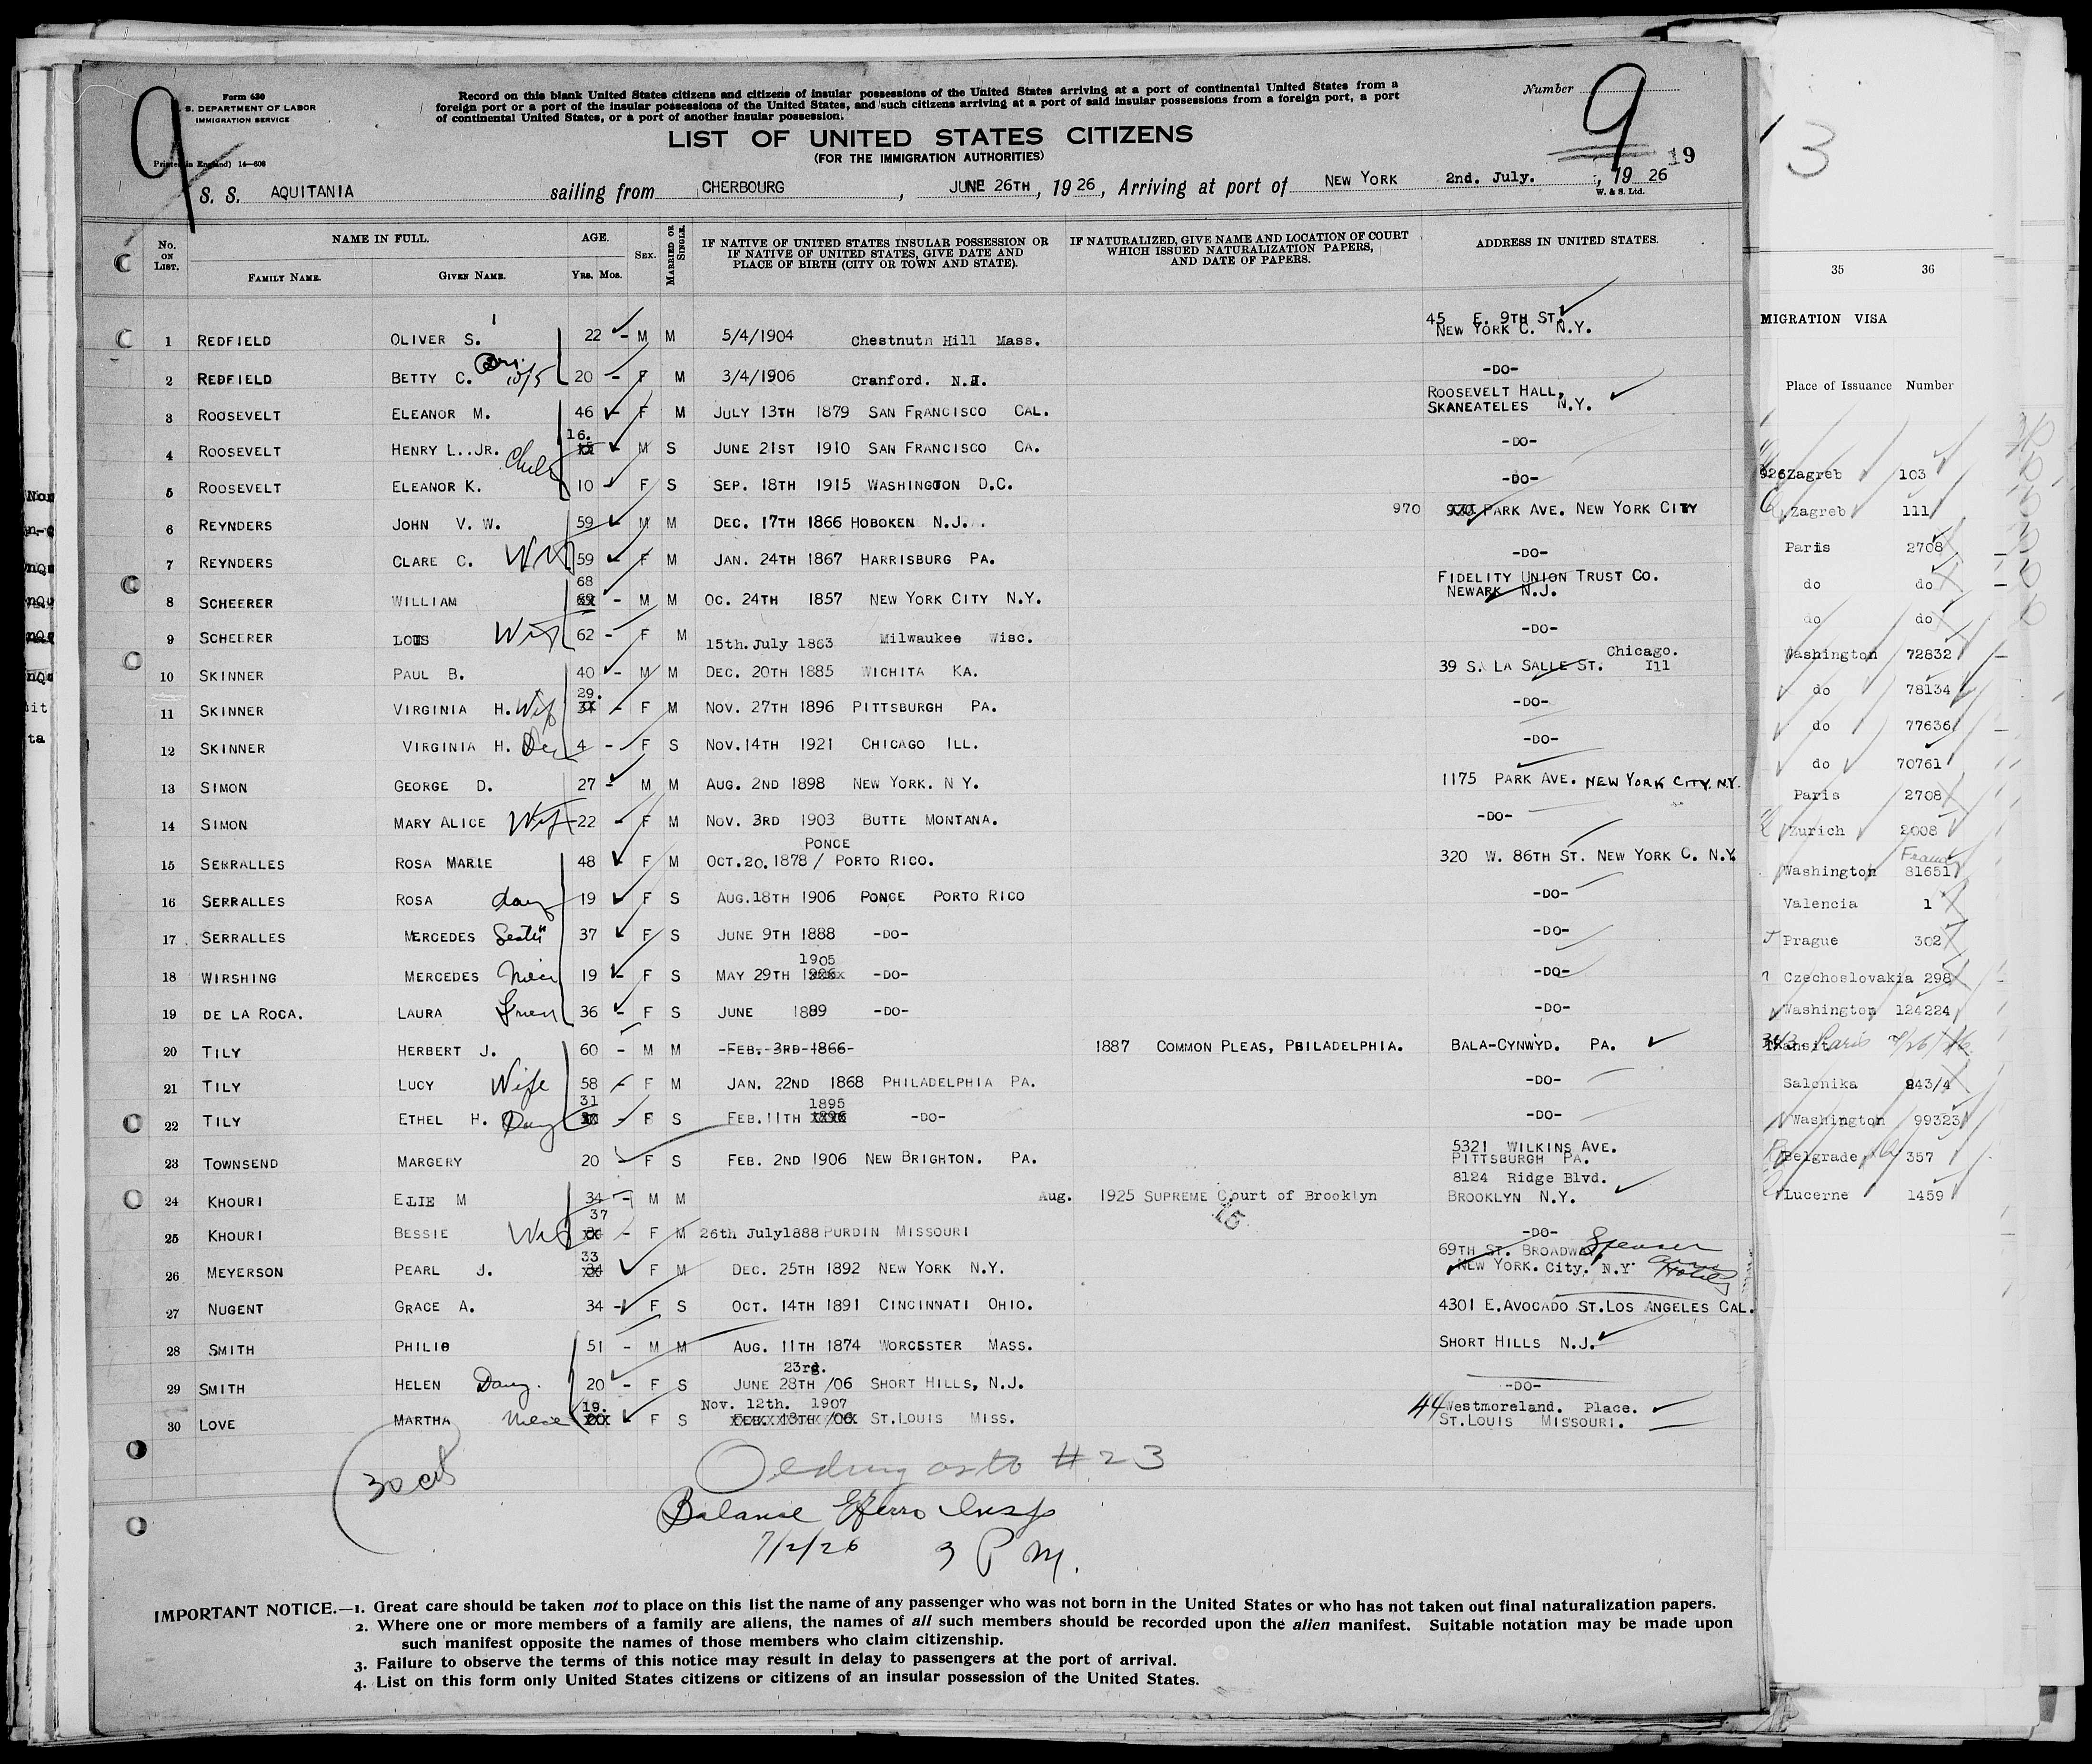 9
Form 630
S. DEPARTMENT OF LABOR
IMMIGRATION SERVICE
Printed in England) 14—608
Record on this blank United States citizens and citizens of insular possessions of the United States arriving at a port of continental United States from a
foreign port or a port of the insular possessions of the United States, and such citizens arriving at a port of said insular possessions from a foreign port, a port
of continental United States, or a port of another insular possession.
Number 9
LIST OF UNITED STATES CITIZENS
(FOR THE IMMIGRATION AUTHORITIES)
19
3
S. S. AQUITANIA sailing from CHERBOURG, JUNE 26TH, 1926, Arriving at port of NEW YORK 2nd. July., 1926
W. & S. Ltd.
No. ON LIST. NAME IN FULL. FAMILY NAME. GIVEN NAME. AGE. Yrs. Mos. SEX. MARRIED OR SINGLE. IF NATIVE OF UNITED STATES INSULAR POSSESSION OR IF NATIVE OF UNITED STATES, GIVE DATE AND PLACE OF BIRTH (CITY OR TOWN AND STATE). IF NATURALIZED, GIVE NAME AND LOCATION OF COURT WHICH ISSUED NATURALIZATION PAPERS, AND DATE OF PAPERS. ADDRESS IN UNITED STATES.
1 REDFIELD OLIVER S. 22 - M M 5/4/1904 Chestnuth Hill Mass. 45 E. 9TH ST. NEW YORK C. N.Y.
2 REDFIELD BETTY C. 20 - F M 3/4/1906 Cranford. N.J. -DO-
3 ROOSEVELT ELEANOR M. 46 - F M JULY 13TH 1879 SAN FRANCISCO CAL. ROOSEVELT HALL, SKANEATELES N.Y.
4 ROOSEVELT HENRY L..JR. 16. M S JUNE 21ST 1910 SAN FRANCISCO CA. -DO-
5 ROOSEVELT ELEANOR K. 10 F S SEP. 18TH 1915 WASHINGTON D.C. -DO-
6 REYNDERS JOHN V. W. 59 M M DEC. 17TH 1866 HOBOKEN N.J. 970 PARK AVE. NEW YORK CITY
7 REYNDERS CLARE C. Wife 59 F M JAN. 24TH 1867 HARRISBURG PA. -DO-
8 SCHEERER WILLIAM 68 - M M OC. 24TH 1857 NEW YORK CITY N.Y. FIDELITY UNION TRUST CO. NEWARK N.J.
9 SCHEERER LOIS Wife 62 - F M 15th.July 1863 Milwaukee Wisc. -DO-
10 SKINNER PAUL B. 40 - M M DEC. 20TH 1885 WICHITA KA. 39 S. LA SALLE ST. Chicago. Ill
11 SKINNER VIRGINIA H. Wife 29. - F M NOV. 27TH 1896 PITTSBURGH PA. -DO-
12 SKINNER VIRGINIA H. 4 - F S NOV.14TH 1921 CHICAGO ILL. -DO-
13 SIMON GEORGE D. 27 - M M AUG. 2ND 1898 NEW YORK. N Y. 1175 PARK AVE. NEW YORK CITY. N.Y.
14 SIMON MARY ALICE Wife 22 - F M NOV. 3RD 1903 BUTTE MONTANA. -DO-
15 SERRALLES ROSA MARIE 48 - F M OCT.20.1878 / PONCE PORTO RICO. 320 W. 86TH ST. NEW YORK C. N.Y.
16 SERRALLES ROSA daug 19 F S AUG.18TH 1906 PONCE PORTO RICO -DO-
17 SERRALLES MERCEDES 37 F S JUNE 9TH 1888 -DO- -DO-
18 WIRSHING MERCEDES Niece 19 - F S MAY 29TH 1905 -DO- -DO-
19 DE LA ROCA. LAURA 36 - F S JUNE 1889 -DO- -DO-
20 TILY HERBERT J. 60 - M M -FEB.-3RD-1866- 1887 COMMON PLEAS, PHILADELPHIA. BALA-CYNWYD. PA.
21 TILY LUCY Wife 58 - F M JAN. 22ND 1868 PHILADELPHIA PA. -DO-
22 TILY ETHEL H. Daug 31 - F S FEB.11TH 1895 -DO- -DO-
23 TOWNSEND MARGERY 20 - F S FEB. 2ND 1906 NEW BRIGHTON. PA. 5321 WILKINS AVE. PITTSBURGH PA.
24 KHOURI ELIE M 34 - M M Aug. 15 1925 SUPREME Court of Brooklyn 8124 Ridge Blvd. BROOKLYN N.Y.
25 KHOURI BESSIE Wife 37 - F M 26th July1888 PURDIN MISSOURI -DO-
26 MEYERSON PEARL J. 33 F M DEC. 25TH 1892 NEW YORK N.Y. 69TH ST. BROADWAY NEW YORK. City. N.Y.
27 NUGENT GRACE A. 34 - F S OCT. 14TH 1891 CINCINNATI OHIO. 4301 E.AVOCADO ST.LOS ANGELES CAL.
28 SMITH PHILIP 51 - M M AUG. 11TH 1874 WORCESTER MASS. SHORT HILLS N.J.
29 SMITH HELEN Daug. 20 - F S 23rd. JUNE 28TH /06 SHORT HILLS, N.J. -DO-
30 LOVE MARTHA niece 19. F S Nov. 12th. 1907 ST.LOUIS MISS. 44 Westmoreland. Place. ST.LOUIS MISSOURI.
30 cit
#23
Balance Insp
7/2/26 3 P M.
IMPORTANT NOTICE.—1. Great care should be taken not to place on this list the name of any passenger who was not born in the United States or who has not taken out final naturalization papers.
2. Where one or more members of a family are aliens, the names of all such members should be recorded upon the alien manifest. Suitable notation may be made upon
such manifest opposite the names of those members who claim citizenship.
3. Failure to observe the terms of this notice may result in delay to passengers at the port of arrival.
4. List on this form only United States citizens or citizens of an insular possession of the United States.
35 36
MIGRATION VISA
Place of Issuance Number
926 Zagreb 103
Zagreb 111
Paris 2708
do do
do do
Washington 72832
do 78134
do 77636
do 70761
Paris 2708
Zurich 2008
Washington 81651
Valencia 1
Prague 302
Czechoslovakia 298
Washington 124224
Transit Paris
Salonika 243/4
Washington 99323
Belgrade 357
Lucerne 1459